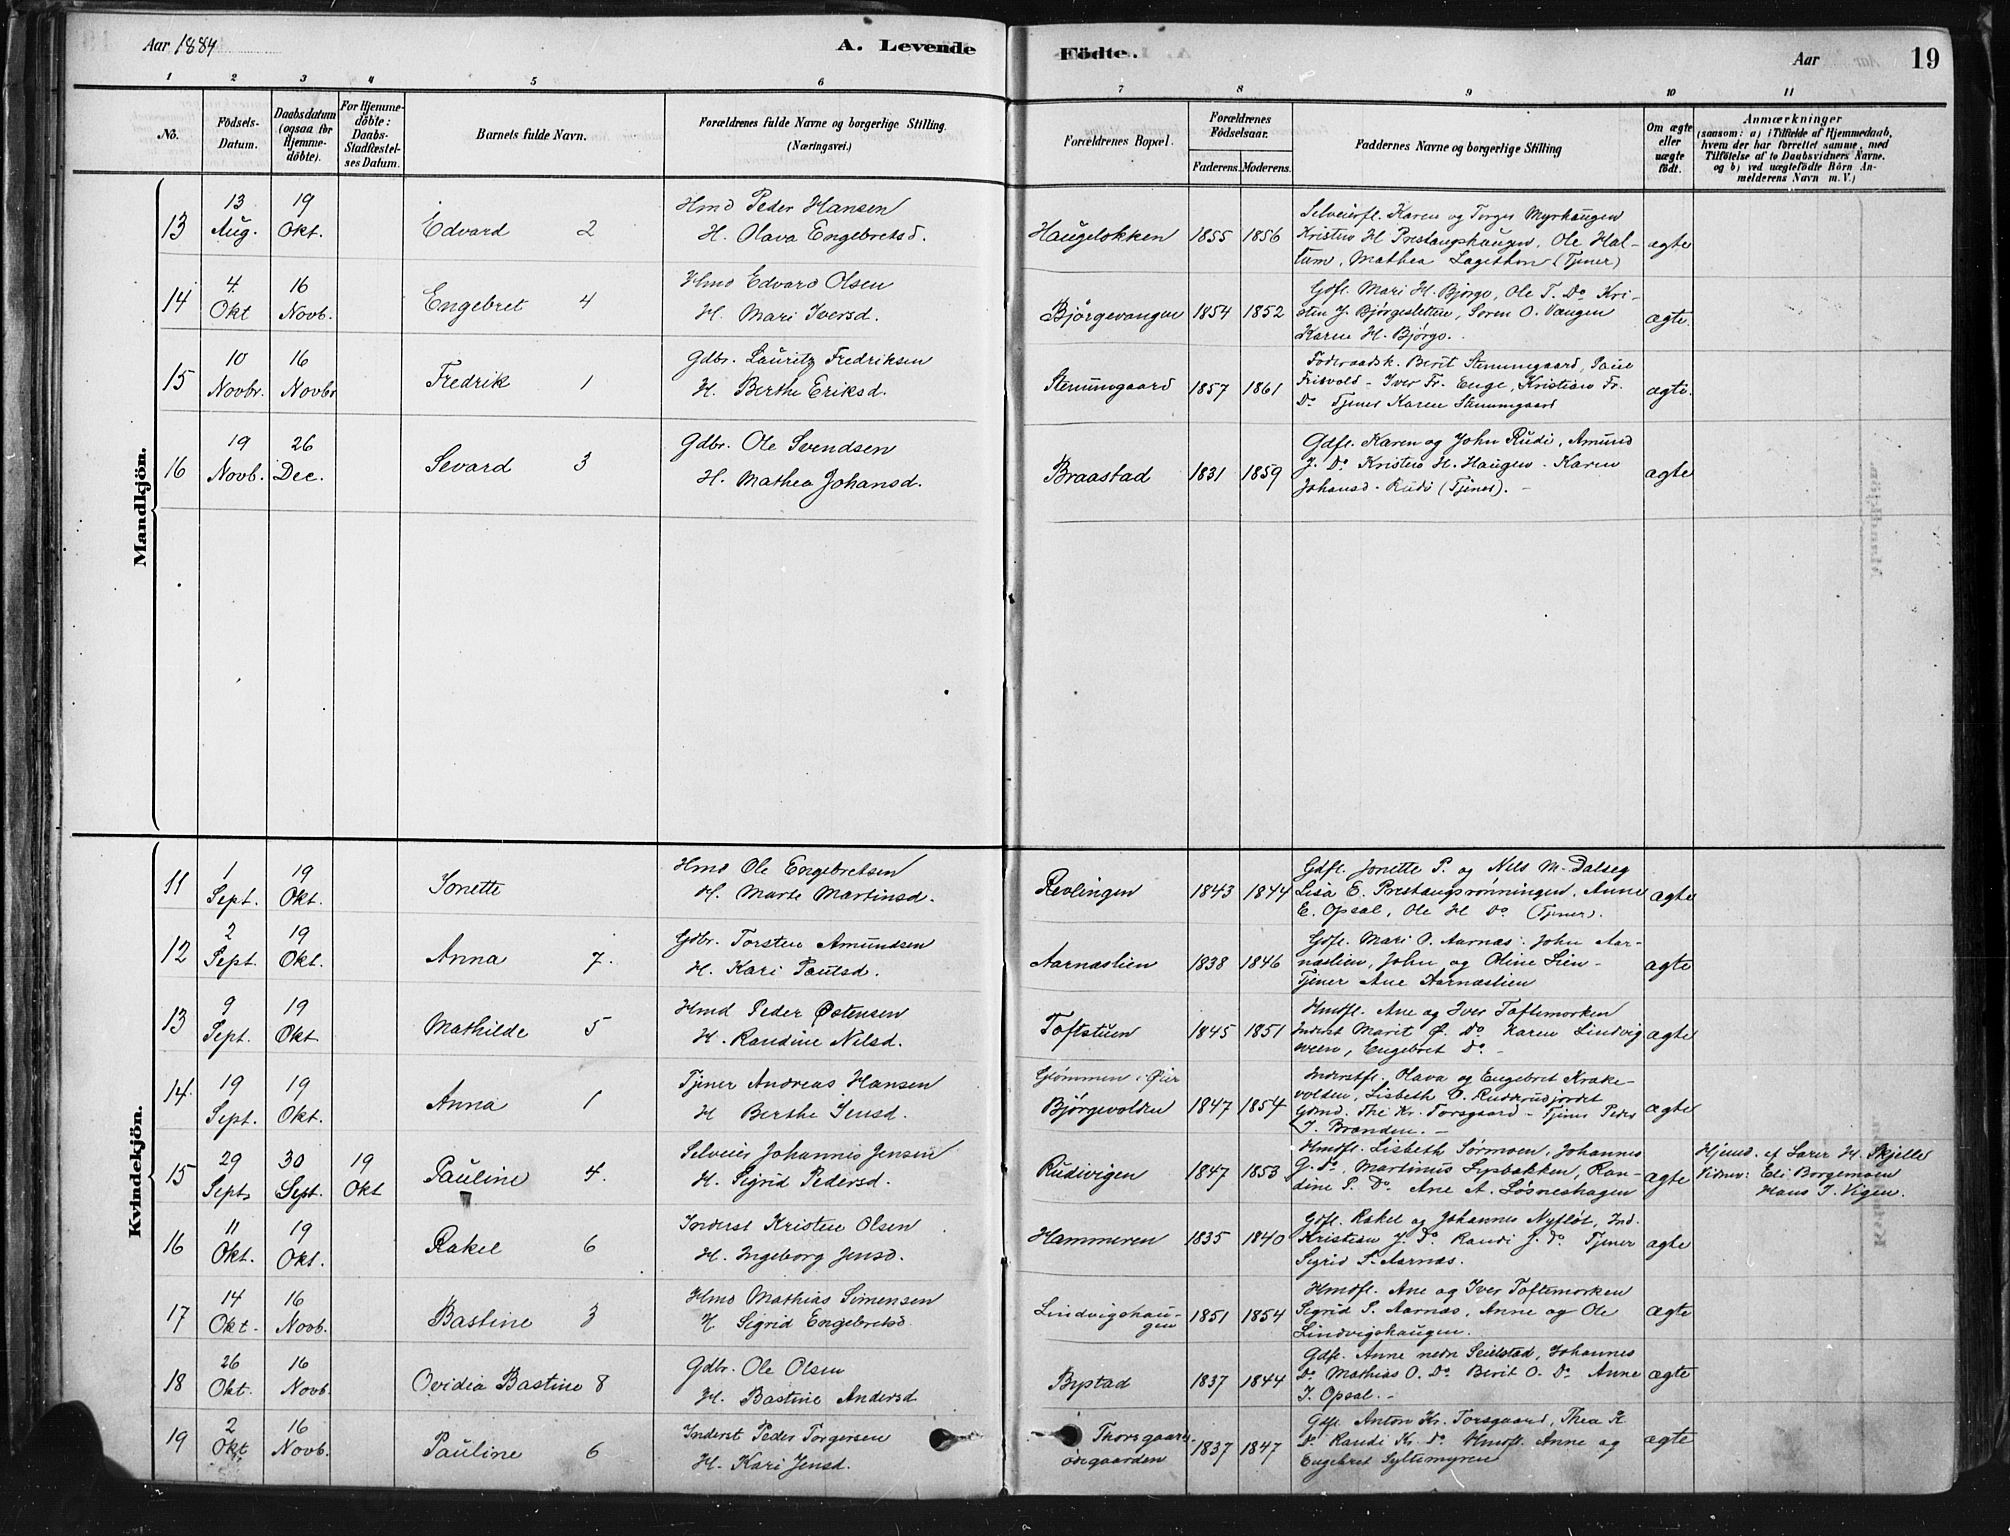 Aar 1884
A. Levende
Födte.
Aar
19
1 2 3 4 5 6 7 8 9 10 11
No.
Födsels-
Datum.
Daabsdatum
(ogsaa for
Hjemme-
döbte).
For Hjemme-
döbte:
Daabs-
Stadfæstel-
ses Datum.
Barnets fulde Navn.
Forældrenes fulde Navne og borgerlige Stilling.
(Næringsvei.)
Forældrenes Bopæl.
Forældrenes
Födselsaar.
Faderens. Moderens.
Faddernes Navne og borgerlige Stilling
Om ægte
eller
uægte
födt.
Anmærkninger
(saasom: a) i Tilfælde af Hjemmedaab,
hvem der har forrettet samme, med
Tilföielse af to Daabsvidners Navne.
og b) ved uægtefödte Börn An-
melderens Navn m. V.)
Mandkjön.
13
13 Aug.
19 Okt.
Edvard 2
Hmd Peder Hansen
H. Olava Engebretsd.
Haugelokken
1855 1856
Selveierfl. Karen og Torger Myrhaugen
Kristen H Prestangshaugen, Ole Hal-
tum, Mathea Lagethon (Tjener)
ægte
14
4. Okt
16 Novb.
Engebret 4
Hmd Edvard Olsen
H. Mari Iversd.
Bjørgevangen
1854 1852
Gdfl. Mari H. Bjørge, Ole T. Do Kri-
sten J. Bjørgesletten, Søren O. Vangen
Karen H. Bjørge.
ægte.
15
10 Novbr.
16 Novbr
Fredrik 1
Gdbr. Lauritz Fredriksen
H. Berthe Eriksd.
Stenumgaard
1857 1861
Foderaadsk. Berit Stenumgaard,
Frisvold - Iver Fr. Enge, Kristian Fr.
Do Tjener Karen Stenumgaard
ægte.
16
19 Novb.
26 Dec.
Sevard 3
Gdbr. Ole Svendsen
H. Mathea Johansd.
Braastad
1831 1859
Gdfl. Karen og John Rudi, Amund
J. Do Kristen H. Haugen. Karen
Johansd. Rudi (Tjener). -
ægte
Kvindekjön.
11
1 Sept.
19 Okt.
Jonette
Hmd Ole Engebretsen
H. Marte Martinsd.
Revlingen
1843 1844
Gdfl. Jonette P. og Nels M. Dalseg
Lisa E. Prestangsrønningen, Anne
E. Opsal, Ole H Do (Tjener).
ægte
12
2 Sept.
19 Okt.
Anna 7.
Gdbr. Torsten Amundsen
H. Kari Paulsd.
Aarnæslien
1838 1846
Gdfl. Mari O. Aarnæs. John Aar-
næslien, John og Oline Lien-
Tjener Ane Aarnæslien
ægte
13
9 Sept.
19 Okt
Mathilde 5
Hmd Peder Østensen
H. Randine Nilsd.
Toftstuen
1845 1851
Hmdfl. Ane og Iver Toftemorken
Inderst Marit Ø. Do Karen Lindvig
sveen, Engebret Do. -
ægte
14.
19 Sept.
19 Okt.
Anna 1
Tjener Andreas Hansen
H Berthe Jensd.
Glømmen i Øier
Bjørgevolden
1847 1854
Inderstfl. Olava og Engebret Krake-
volden, Lisbeth O. Rudderudjordet
Gdmd. The Kr. Torsgaard - Tjener Peder
J. Branden. -
ægte
15
29 Sept.
30 Sept.
19 Okt
Pauline 4.
Selveier Johannes Jensen
H. Sigrid Pedersd.
Rudivigen
1847 1853
Hmdfl. Lisbeth Sørmoen, Johannes
G. Do, Martinus Sepbakken, Ran-
dine P. Do. Ane A. Løsneshagen
ægte
Hjmd. af Lærer H. Skjelle
Vidner: Eli Borgemoen
Hans J. Vigen.
16
11 Okt.
19 Okt.
Rakel 6
Inderst Kristen Olsen
H. Ingeborg Jensd.
Hammeren
1835 1840
Gdfl. Rakel og Johannes Nyfløt, Ind.
Kristian J. Do Randi J. Do. Tjener
Sigrid S. Aarnæs.
ægte
17
14 Okt.
16 Novb.
Bastine 3
Hmd Mathias Simensen
H Sigrid Engebretsd.
Lindvigshau-
gen
1851 1854
Hmdfl. Ane og Iver Toftemorken
Sigrid S. Aarnæs, Anne og Ole
Lindvigshaugen.
ægte
18
26 Okt.
16 Novb.
Ovidia Bastine 8
Gdbr. Ole Olsen
H. Bastine Andersd
Bystad
1837 1844
Gdfl. Anne nedr Seielstad, Johannes
Do Mathias O. Do Berit O. Do. Anne
J. Opsal. -
ægte
19
2 Okt.
16 Novb.
Pauline 6
Inderst Peder Torgersen
H. Kari Jensd.
Thorsgaards-
ødegaarden
1837 1847
Gdfl. Anton Kr. Torsgaard, Thea K
Do. Randi Kr. Do. Hmdfl. Anne og
Engebret Syltemyren
ægte